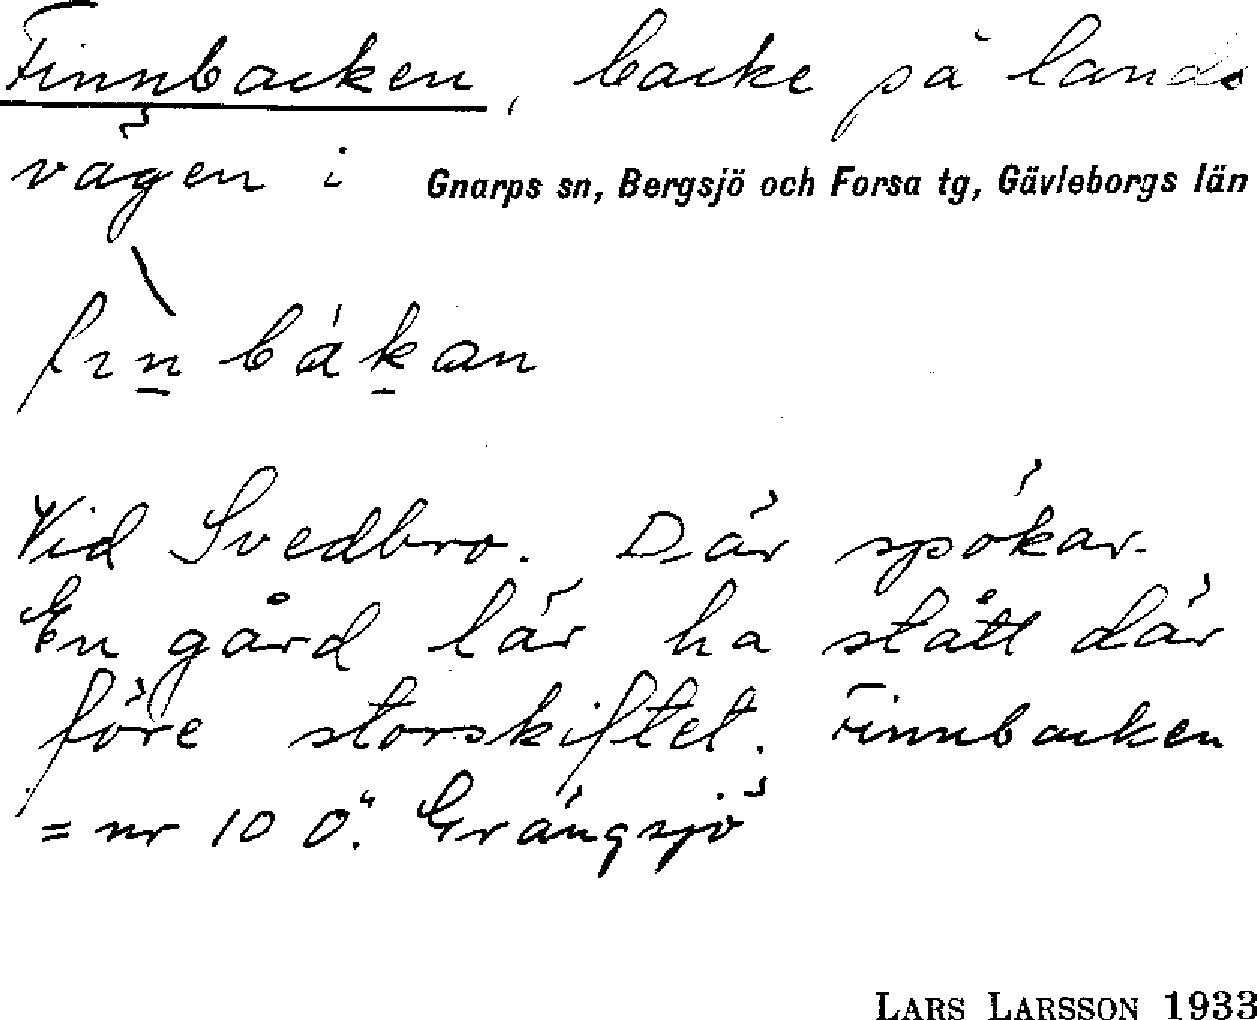 Finnbacken, backe på lands
vägen i Gnarps sn, Bergsjö och Forsa tg, Gävleborgs län
fìn bákan
Vid Svedbro. Där spökar.
En gård lär ha stått där
före storskiftet. Finnbacken
= nr 10 Ö. Grängsjö
LARS LARSSON 1933